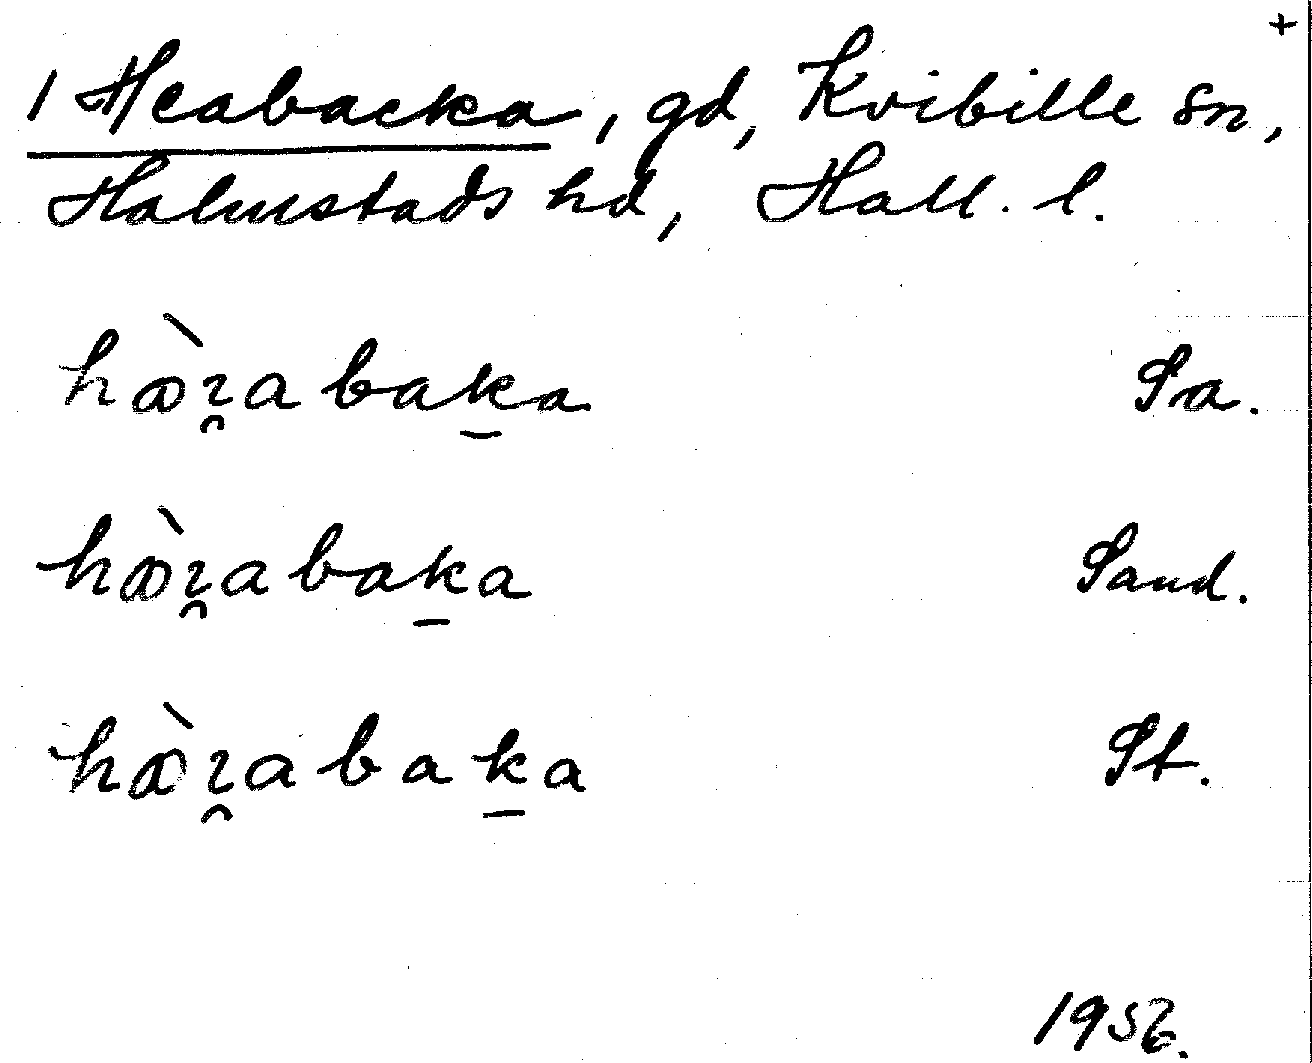 +
1 Heabacka, gd, Kvibille sn,
Halmstads hd, Hall. l.
hæ̀ɿ̯abaḵa Sa.
hæ̀ɿ̯abaḵa Sand.
hæ̀ɿ̯abaḵa St.
1956.